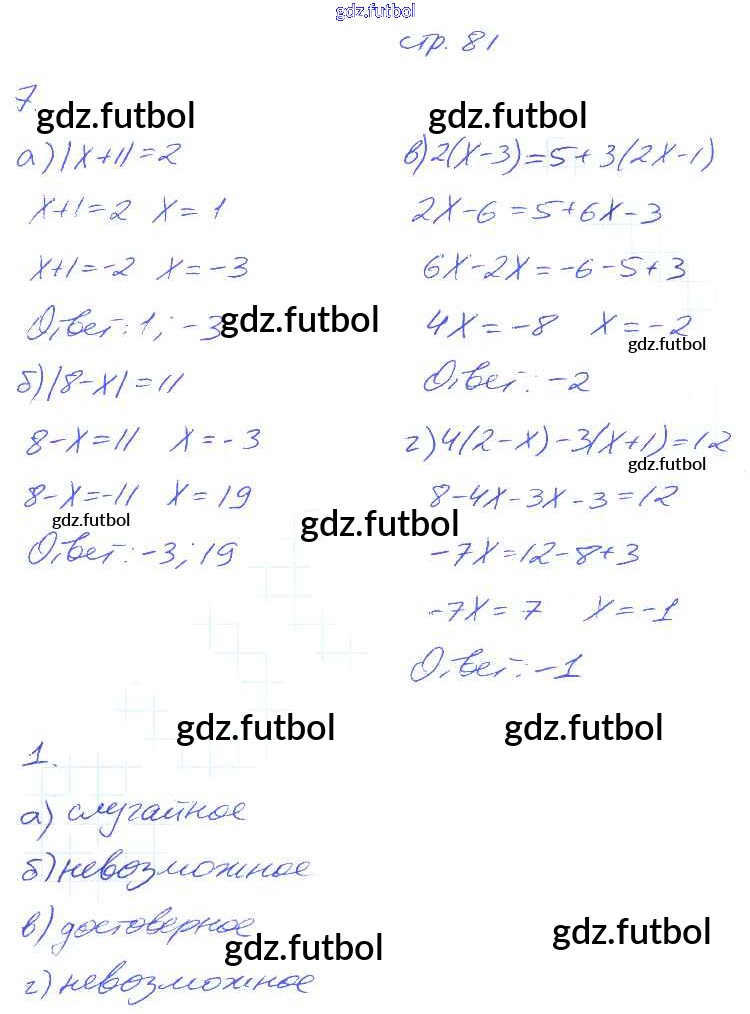 gdz.futbol
стр. 81
7.
gdz.futbol
а) |x+1|=2
x+1=2 x=1
x+1=-2 x=-3
Ответ: 1; -3
gdz.futbol
б) |8-x|=11
8-x=11 x=-3
8-x=-11 x=19
gdz.futbol
Ответ: -3; 19
gdz.futbol
в) 2(x-3)=5+3(2x-1)
2x-6=5+6x-3
6x-2x=-6-5+3
4x=-8 x=-2
gdz.futbol
Ответ: -2
г) 4(2-x)-3(x+1)=12
gdz.futbol
8-4x-3x-3=12
gdz.futbol
-7x=12-8+3
-7x=7 x=-1
Ответ: -1
gdz.futbol
gdz.futbol
1.
а) случайное
б) невозможное
в) достоверное
gdz.futbol
gdz.futbol
г) невозможное